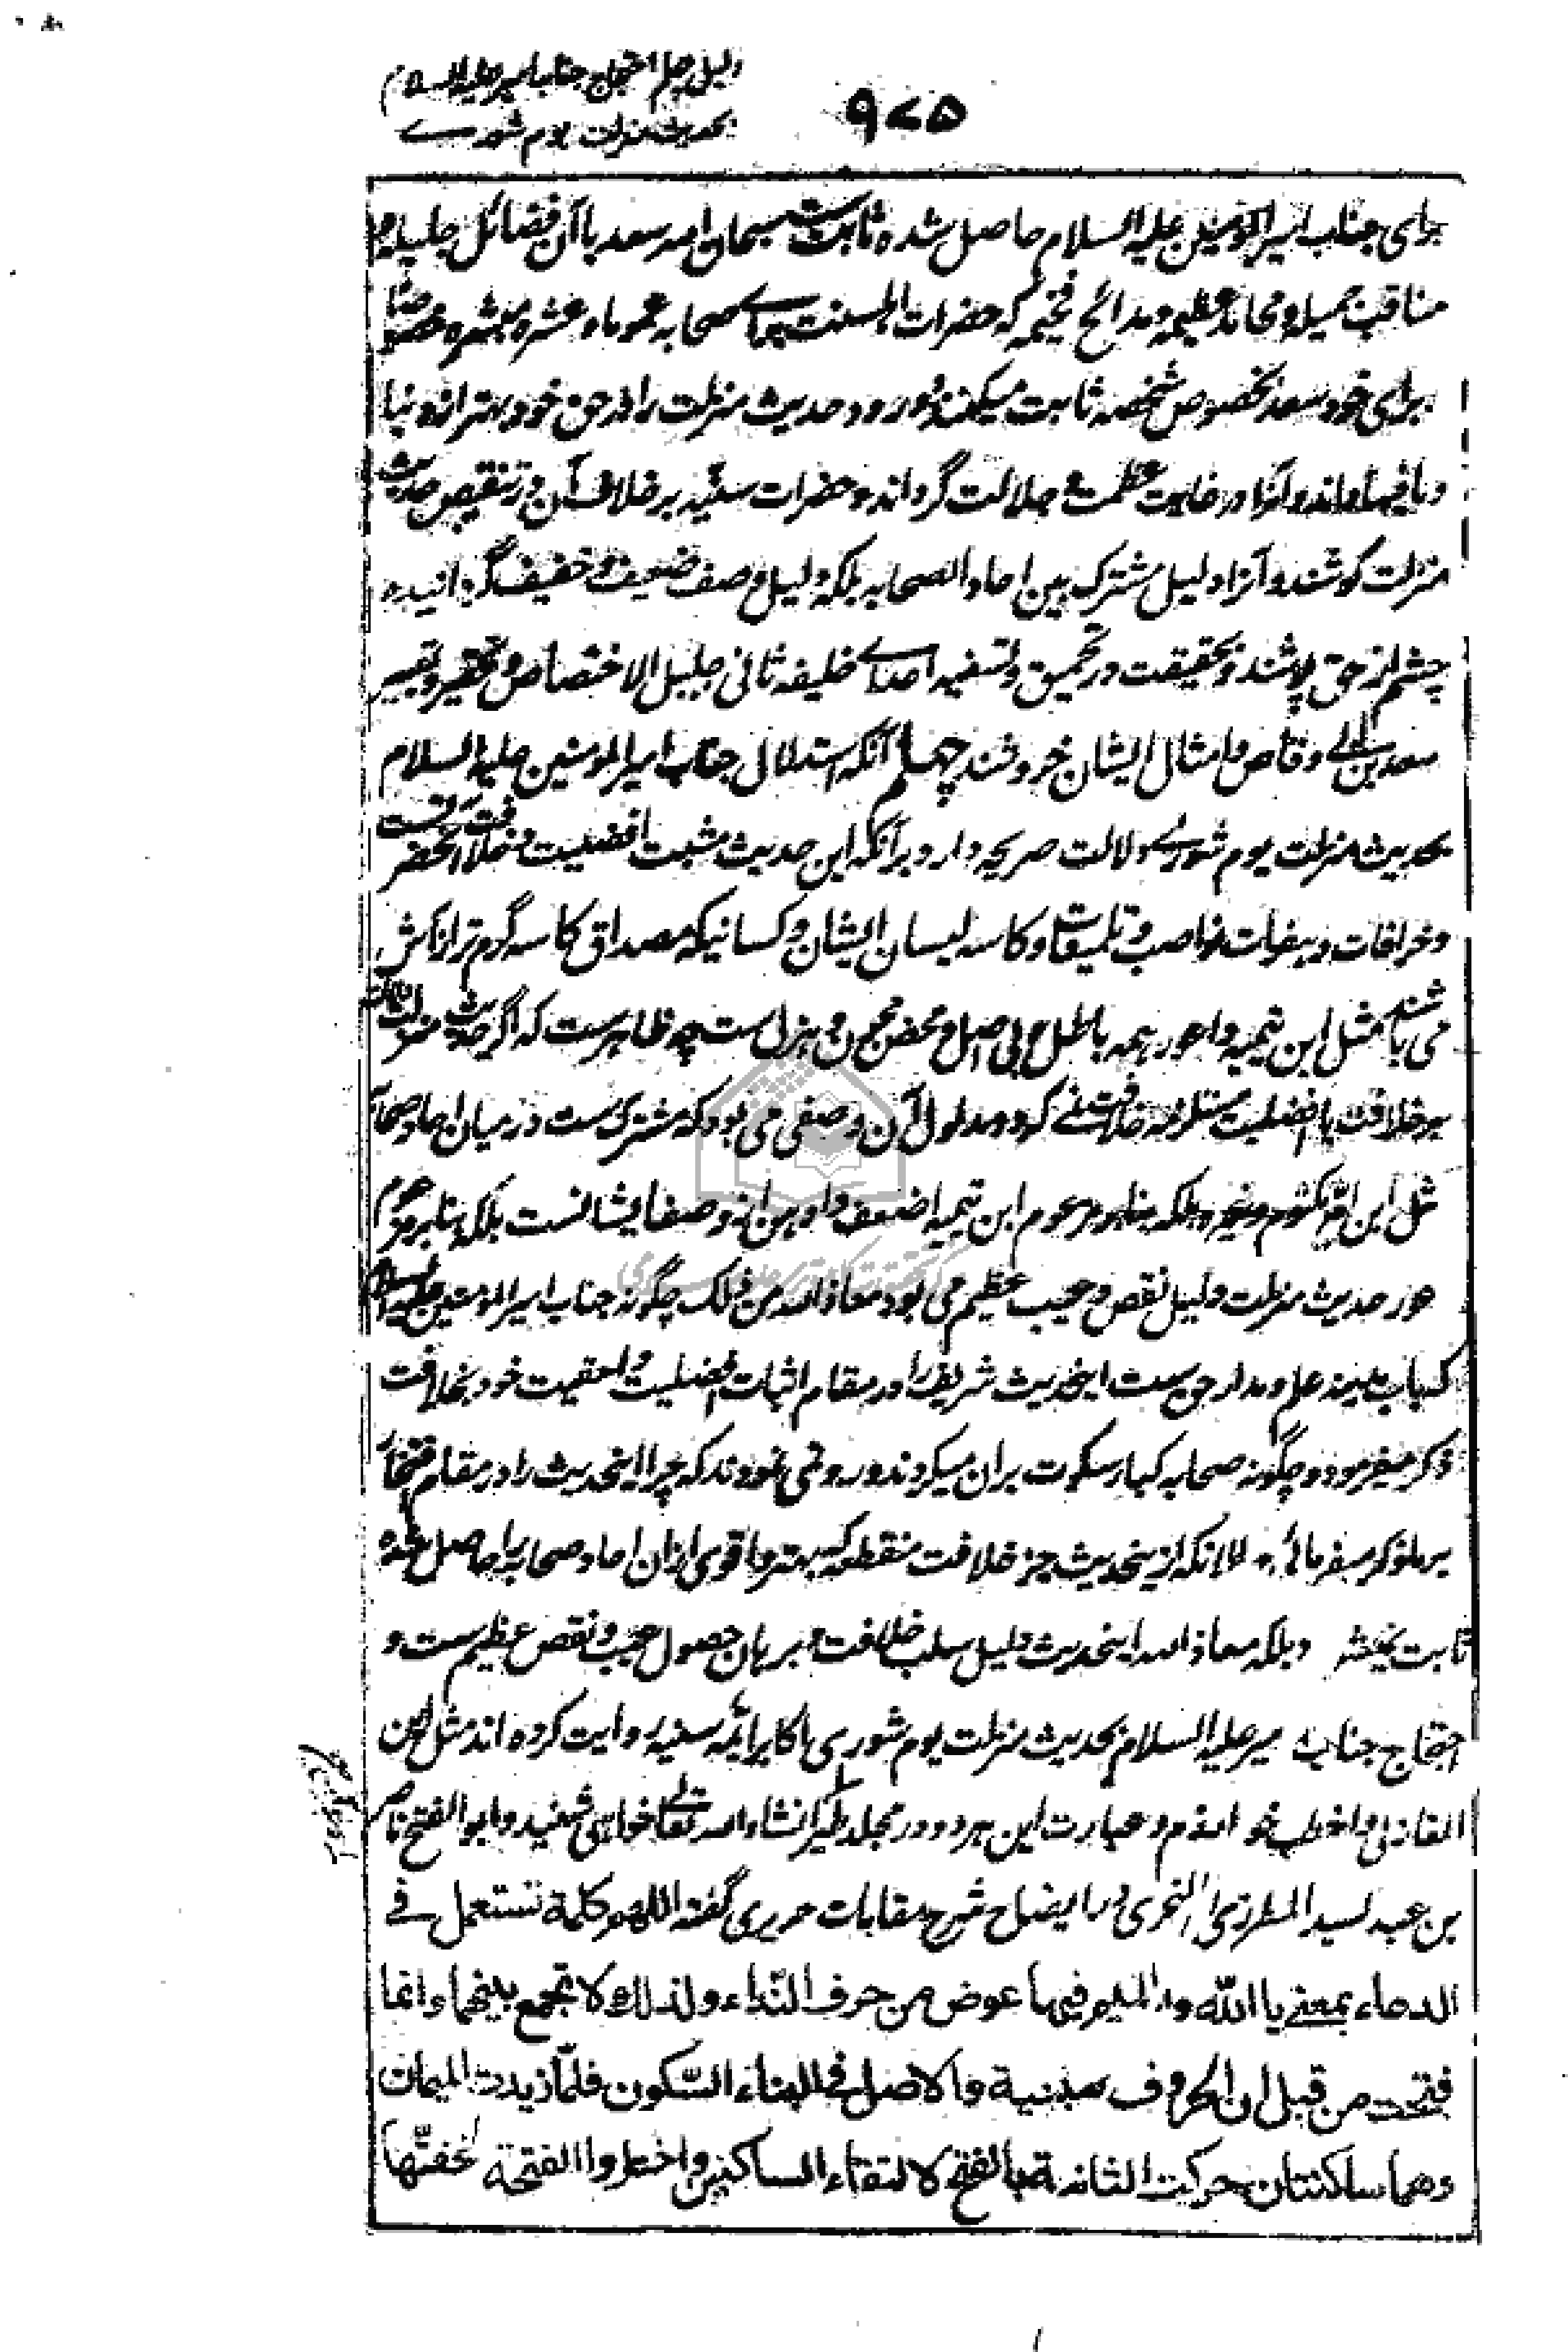 دلیل چهلم احتجاج جناب امیر علیه السلام
بحدیث منزلت یوم شورے
۹۷۵
برای جناب امیر المؤمنین علیه السلام حاصل شده ثابت ست سبحان الله سعد با آن فضائل جلیله و
مناقب جمیله و محامد عظیمه و مدائح فخیمه که حضرات اهلسنت برای صحابه عموما و عشره مبشره خصوصا
برای خود سعد بخصوص شخصه ثابت میکنند ورود حدیث منزلت را در حق خود بهتر از دنیا
و ما فیها داند و آنرا در غایت عظمت و جلالت گرداند و حضرات سنیه بر خلاف آن در تنقیص حدیث
منزلت کوشند و آنرا دلیل مشترک بین احاد الصحابه بلکه دلیل وصف ضعیف و خفیف گردانیده
چشم از حق پوشند و بحقیقت در تحمیق و تسفیه اصدای خلیفه ثانی جلیل الاختصاص و تحقیر و تعییر
سعد بن ابی وقاص و امثال ایشان خروشند چهلم آنکه استدلال جناب امیر المومنین علیه السلام
بحدیث منزلت یوم شوری دلالت صریحه دارد بر آنکه این حدیث مثبت افضلیت و خلافت آنحضرت ست
و خرافات و هفوات نواصب و تلمیعات و کاسه لیسان ایشان و کسانیکه مصداق کاسه گرم تر از آش
می باشند مثل ابن تیمیه و اعور همه باطل و بی اصل و محض مجون و هزل ست چه ظاهرست که اگر حدیث منزلت دلالت
بر خلافت یا افضلیت مستلزمه خلافت نمے کرد و مدلول آن وصفی می بود که مشترک ست در میان احاد صحابه
مثل ابن ام مکتوم و غیره بلکه بنابر مزعوم ابن تیمیه اضعف و اوهن از وصف ایشانست بلکه بنابر مزعوم
اعور حدیث منزلت دلیل نقص و عیب عظیم می بود معاذ الله من ذلک چگونه جناب امیر المومنین علیه السلام
که باب مدینه علم و مدار حق ست اینحدیث شریف را در مقام اثبات افضلیت و احقیت خود بخلافت
ذکر میفرمود و چگونه صحابه کبار سکوت بران میکردند و رد نمی نمودند که چرا اینحدیث را در مقام افتخار
بر ملا ذکر میفرمائے حالانکه ازینحدیث جز خلافت منقطعه که بهتر و اقوی ازان احاد صحابه را حاصل شده
ثابت نمیشود بلکه معاذ الله اینحدیث دلیل سلب خلافت و برهان حصول عیب و نقص عظیم ست و
احتجاج جناب امیر علیه السلام بحدیث منزلت یوم شوری را اکابر ائمه سنیه روایت کرده اند مثل ابن
المغازلی و اخطب خوارزم و عبارت این هر دو در مجلد طیر انشاء الله تعالی خواهی شنید و ابو الفتح ناصر
بن عبد السید المطرزی النحوی در ایضاح شرح مقامات حریری گفته اللهم کلمة تستعمل فی
الدعاء بمعنی یا الله والمیم فیها عوض من حرف النداء ولذلک لا تجمع بینهما وانما
فتحت من قبل ان الحروف مبنیة والاصل فی البناء السکون فلمّا زیدت المیمان
وهما ساکنتان حرکت الثانیة بالفتح لالتقاء الساکنین واختاروا الفتحة لخفّتها